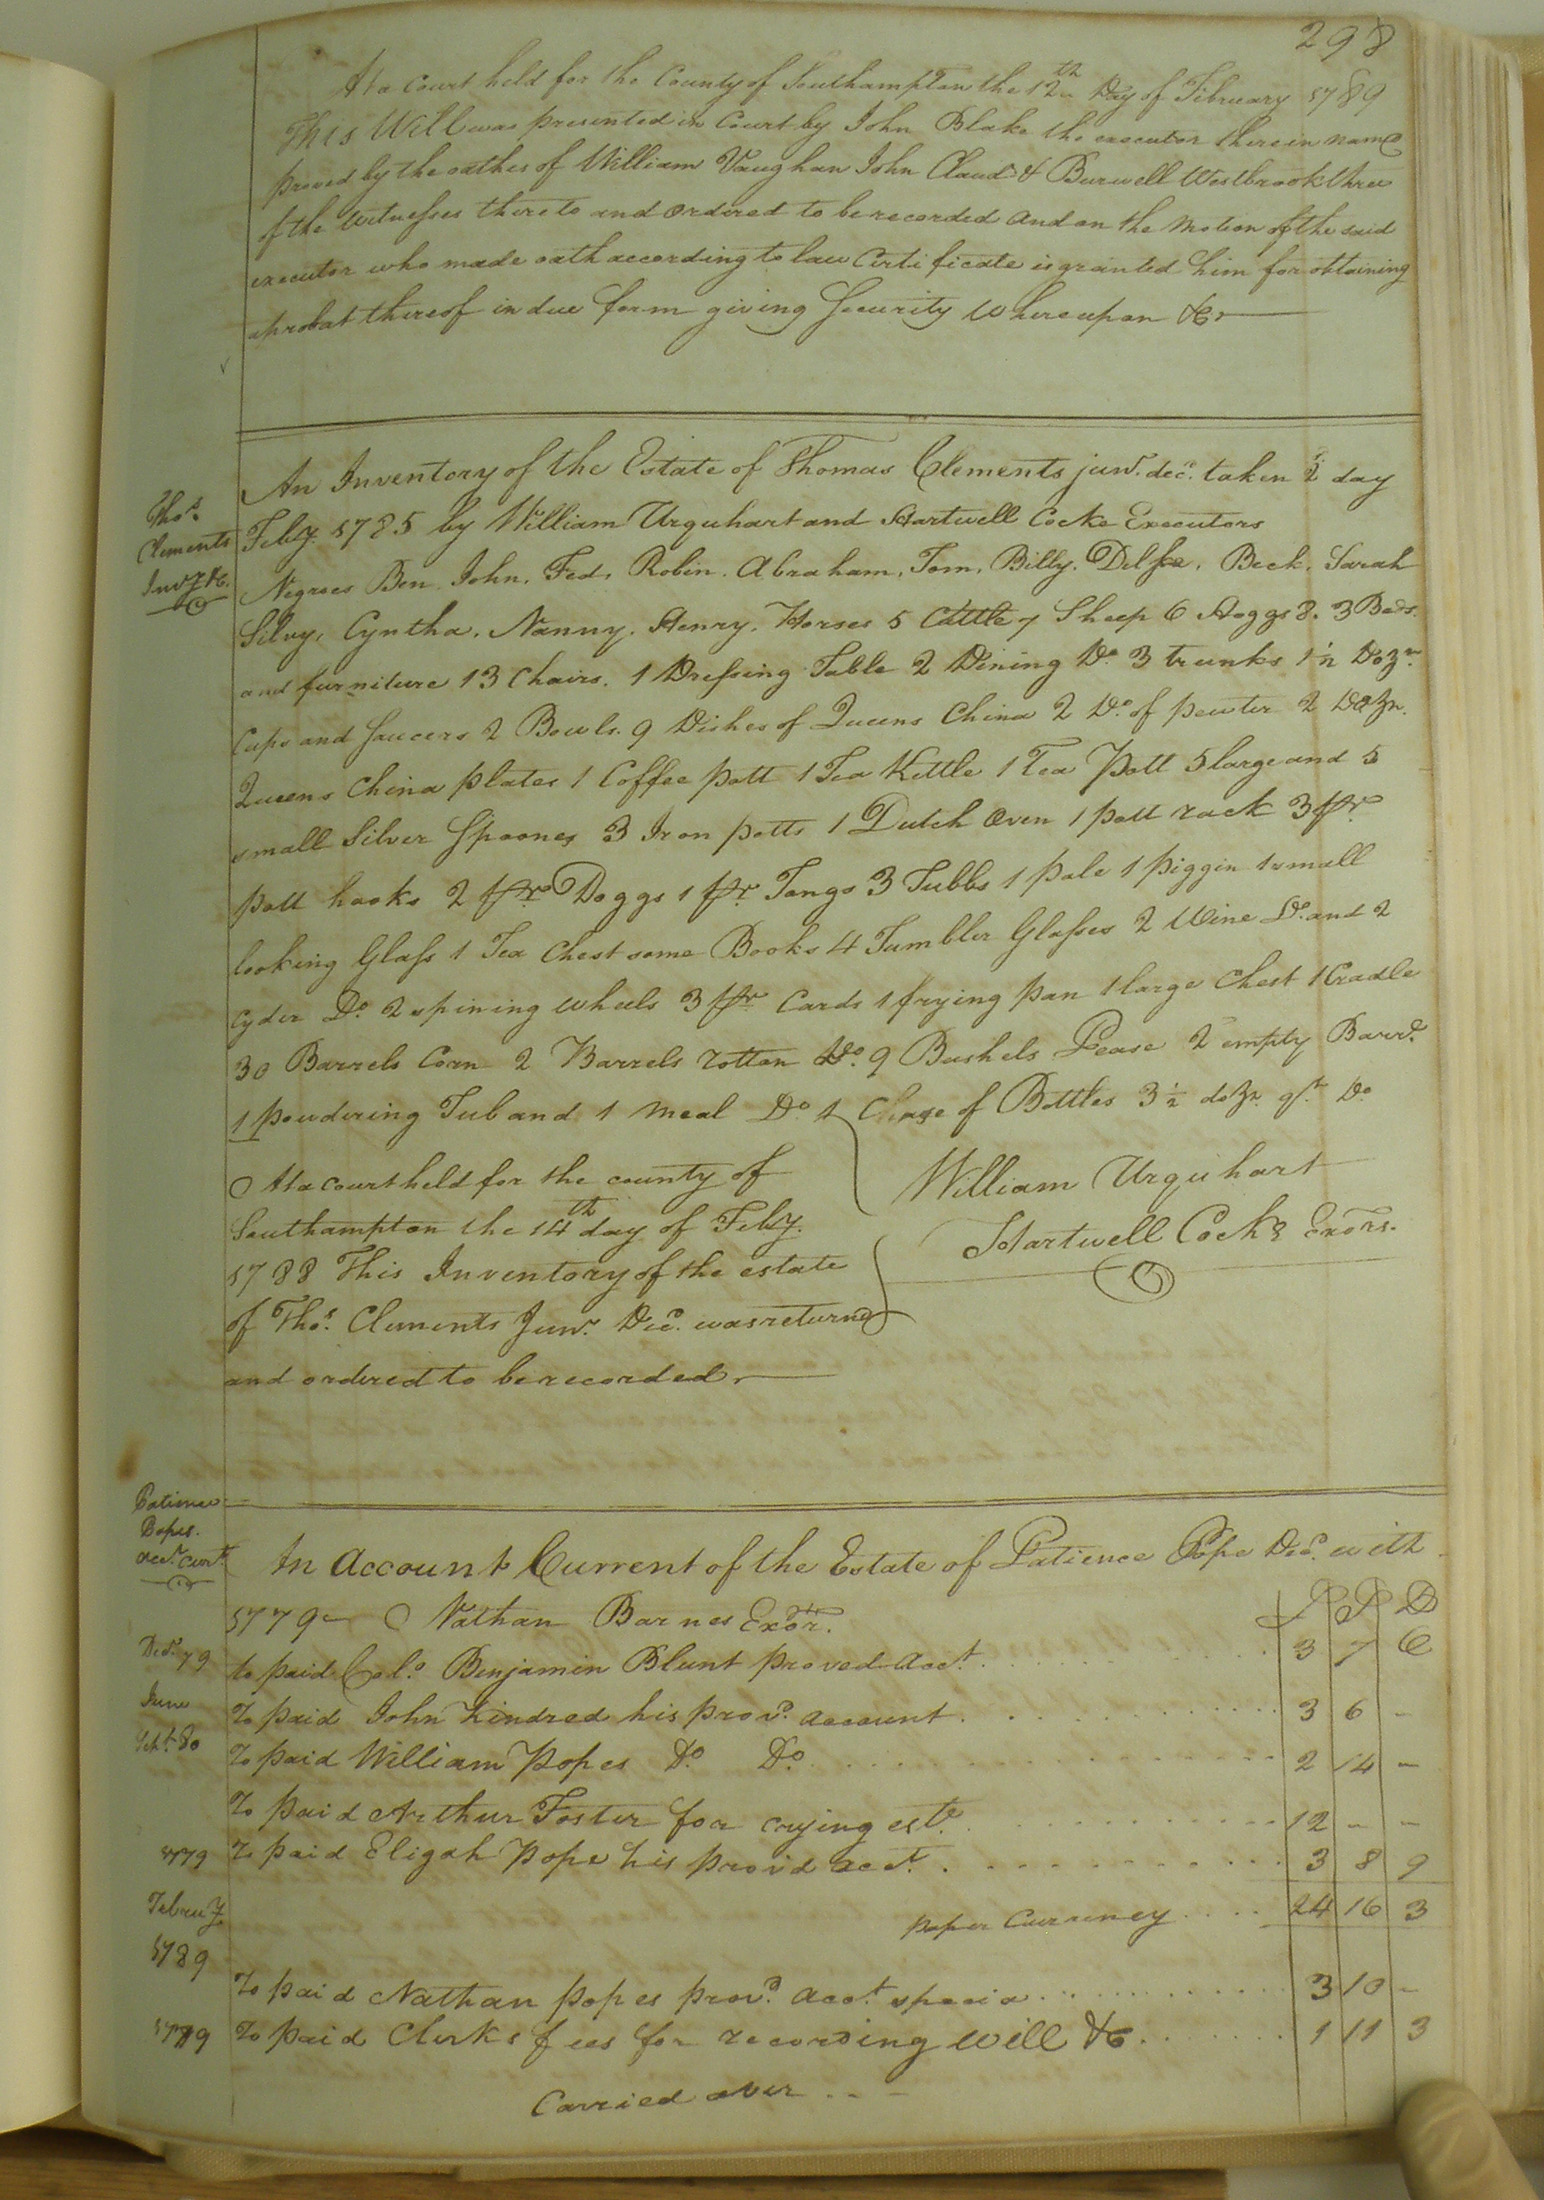 298
At a Court held for the County of Southampton the 12th Day of February 1789
This Will was presented in Court by John Blake the executor therein named
proved by the oathes of William Vaughan John Claud & Burwell Westbrook three
of the Witnesses thereto and ordered to be recorded and on the Motion of the said
executor who made oath according to law Certificate is granted him for obtaining
a probat thereof in due form giving Security Whereupon &c
Thos.
Clements
Invy &c.
An Inventory of the Estate of Thomas Clements junr. decd. taken day
Feby. 1785 by William Urquhart and Hartwell Cocke Executors
Negroes Ben John, Fed, Robin. Abraham, Tom, Billy. Beck. Sarah
Silvy, Cyntha. Nanny. Henry. Horses 5 Cattle 7 Sheep 6 Hoggs 8. 3 Beds
and furniture 13 Chairs. 1 Dressing Table 2 Dining Do. 3 trunks 1 1/2 Dozn.
Cups and Saucers 2 Bowls. 9 Dishes of Queens China 2 Do. of pewter 2 Dozn.
Queens China plates 1 Coffee pott 1 Tea Kettle 1 Tea Pott 5 large and 5
small Silver Spoones 3 Iron potts 1 Dutch Oven 1 pott rack 3 pr.
pott hooks 2 pr. Doggs 1 pr. Tongs 3 Tubbs 1 pale 1 piggin 1 small
looking Glass 1 Tea Chest some Books 4 Tumbler Glasses 2 Wine Do. and 2
Cyder Do. 2 spining wheels 3 pr. Cards 1 frying pan 1 large Chest 1 Cradle
30 Barrels Corn 2 Barrels rotten Do. 9 Bushels Pease 2 empty Barrs.
1 powdering Tub and 1 Meal Do. 1 Chase of Bottles 3 1/2 dozn. qt. Do
At a court held for the county of
Southampton the 14th day of Feby.
1788 This Inventory of the estate
of Thos. Clements Junr. Decd. was returned
and ordered to be recorded.
William Urquhart
Hartwell Cocke Exors.
Patience
Popes
acct. curt.
In Account Current of the Estate of Patience Pope Decd. with
1779 Nathan Barnes Exor.
£ S D
Decr. 79 to paid Colo. Benjamin Blunt proved acct. 3 7 6
June To paid John Kindred his provd. account 3 6 -
Sept. 80 To paid William Popes Do. Do. 2 14 -
To paid Arthur Foster for crying este. 12 - -
1779 To paid Eligah Pope his prov'd acct. 3 8 9
Februy. paper Currency 24 16 3
1789
To paid Nathan popes provd. acct. specia 3 10 -
1779 To paid Clerks fees for recording Will &c 1 11 3
Carried over